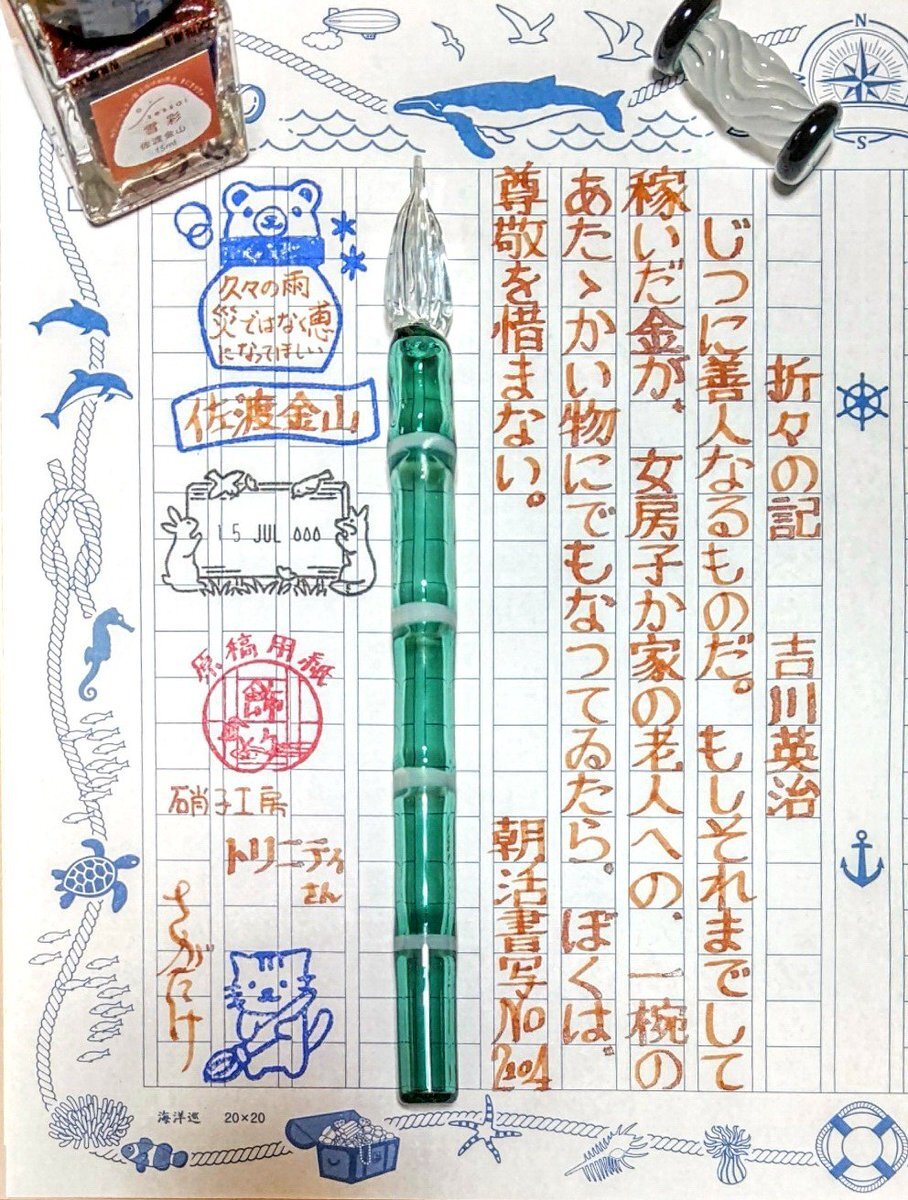 折々の記 吉川英治
じつに善人なるものだ。もしそれまでして
稼いだ金が、女房子か家の老人への、一椀の
あたゝかい物にでもなつてゐたら、ぼくは、
尊敬を惜まない。 朝活書写No
2104
久々の雨
災ではなく恵
になってほしい
佐渡金山
15 JUL
原稿用紙
硝子工房
トリニティ
さん
さがみけ
雪彩
佐渡金山
15ml
N
S
海洋巡 20×20